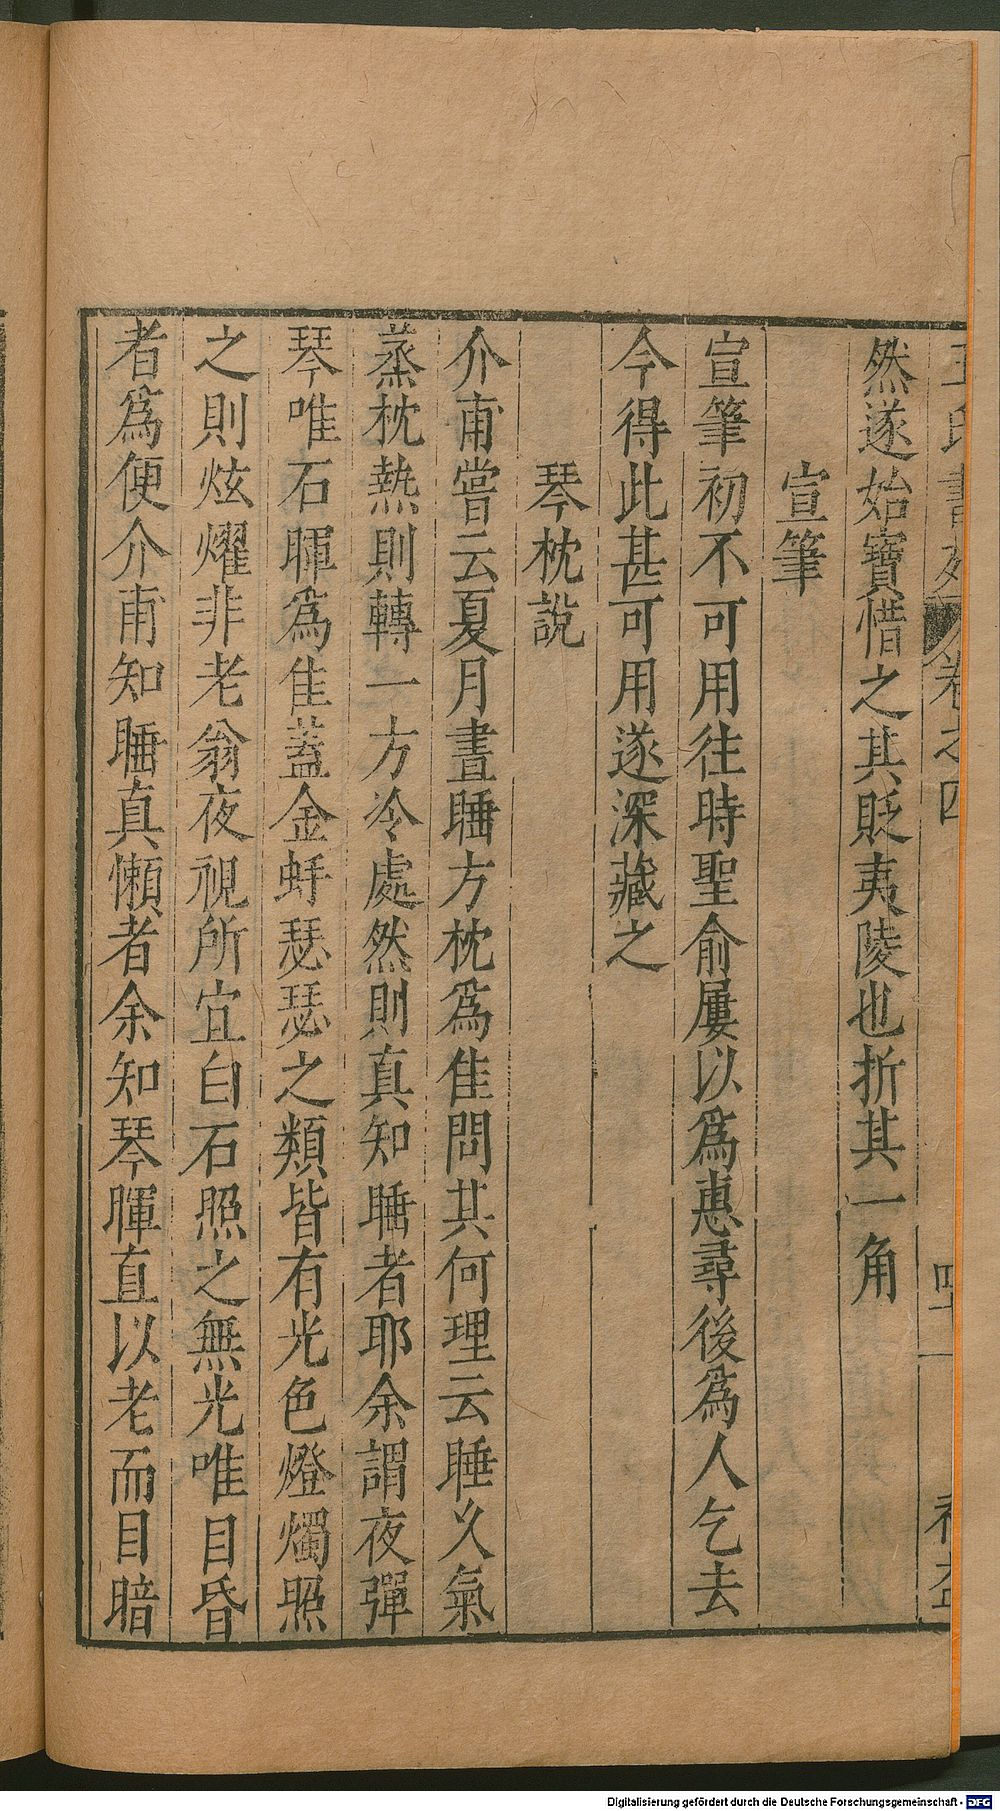 王氏書苑 卷之四 四十一 補益
然遂始寶惜之其貶夷陵也折其一角
宣筆
宣筆初不可用往時聖俞屢以爲惠尋後爲人乞去
今得此甚可用遂深藏之
琴枕說
介甫嘗云夏月晝睡方枕爲佳問其何理云睡久氣
蒸枕熱則轉一方冷處然則真知睡者耶余謂夜彈
琴唯石暉爲佳蓋金蚌瑟瑟之類皆有光色燈燭照
之則炫燿非老翁夜視所宜白石照之無光唯目昏
者爲便介甫知睡真懶者余知琴暉直以老而目暗
Digitalisierung gefördert durch die Deutsche Forschungsgemeinschaft - DFG